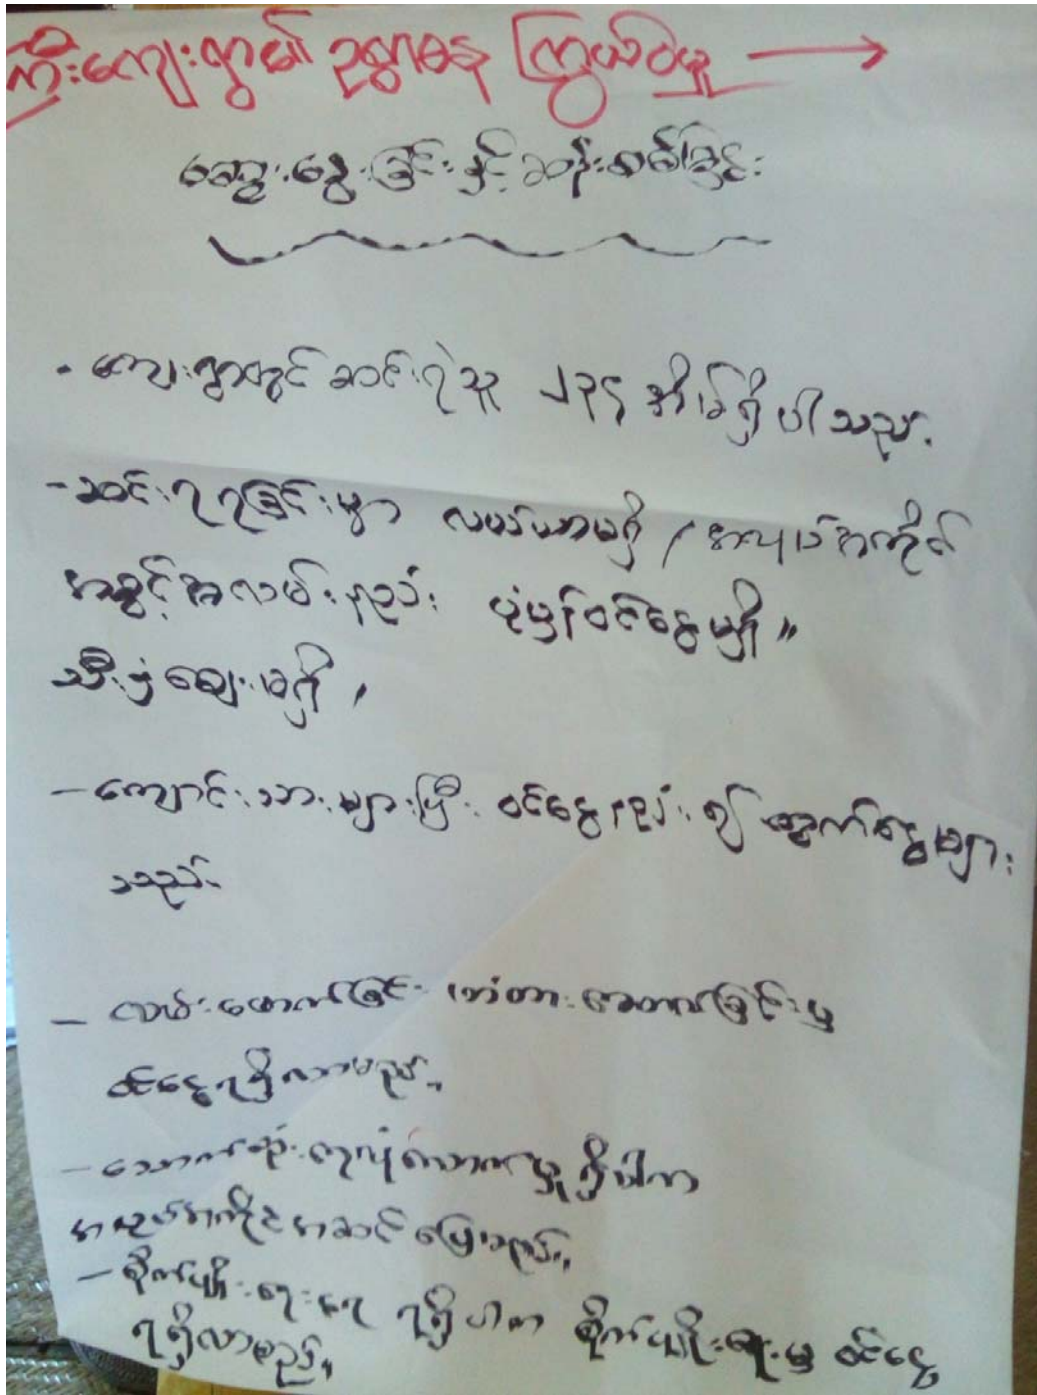 ကြီးကျေးရွာ၏ ဥစ္စာဓန ကြွယ်ဝမှု →
ဆွေးနွေးခြင်းနှင့်ဆန်းစစ်ခြင်း
• ကျေးရွာတွင် ဆင်းရဲသူ ၂၃၄ အိမ်ရှိပါသည်.
- ဆင်းရဲရခြင်းမှာ လယ်ယာမရှိ / အလုပ်အကိုင်
အခွင့်အလမ်းနည်း ပုံမှန်ဝင်ငွေမရှိ။
သီးနှံဈေးမရှိ ၊
- ကျောင်းသားများပြီး ဝင်ငွေနည်း၍ ထွက်ငွေများ
သည်.
- လမ်းဖောက်ခြင်း တံတားဆောက်ခြင်းမှ
ဝင်ငွေရရှိလာမည်။
- သောက်သုံးရေလုံလောက်မှုရှိပါက
အလုပ်အကိုင်အဆင်ပြေသည်။
- စိုက်ပျိုးရေးရေ ရရှိပါက စိုက်ပျိုးရေးမှ ဝင်ငွေ
ရရှိလာမည်။